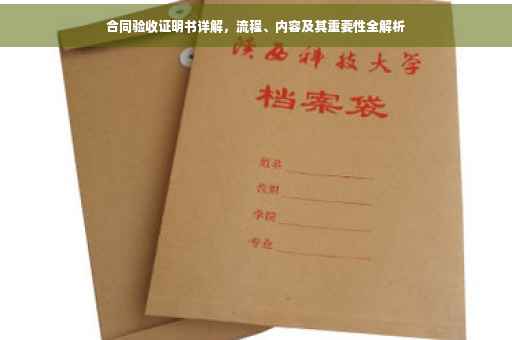 合同验收证明书详解，流程、内容及其重要性全解析
陕西科技大学
档案袋
学院
专业